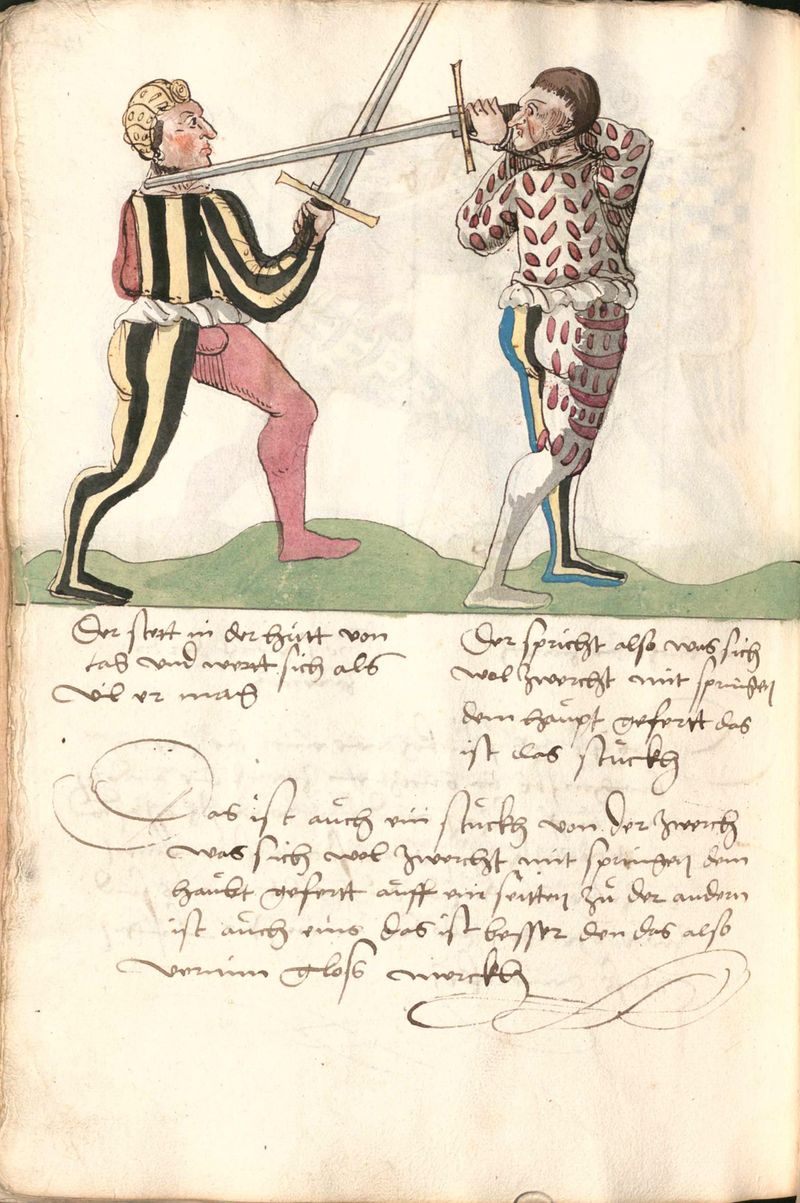 Der stett in der hütt von
tag und wertt sich als
vil er mag
Der spricht also was sich
wol zwercht mit springen
dem haupt gefertt das
ist das stückh
Das ist aüch ein stückh von der zwerch
was sich wol zwercht mit springen dem
haübt gefertt aüff ein seitten zü der andern
ist aüch eins das ist besser den das also
vernim glosß merckh